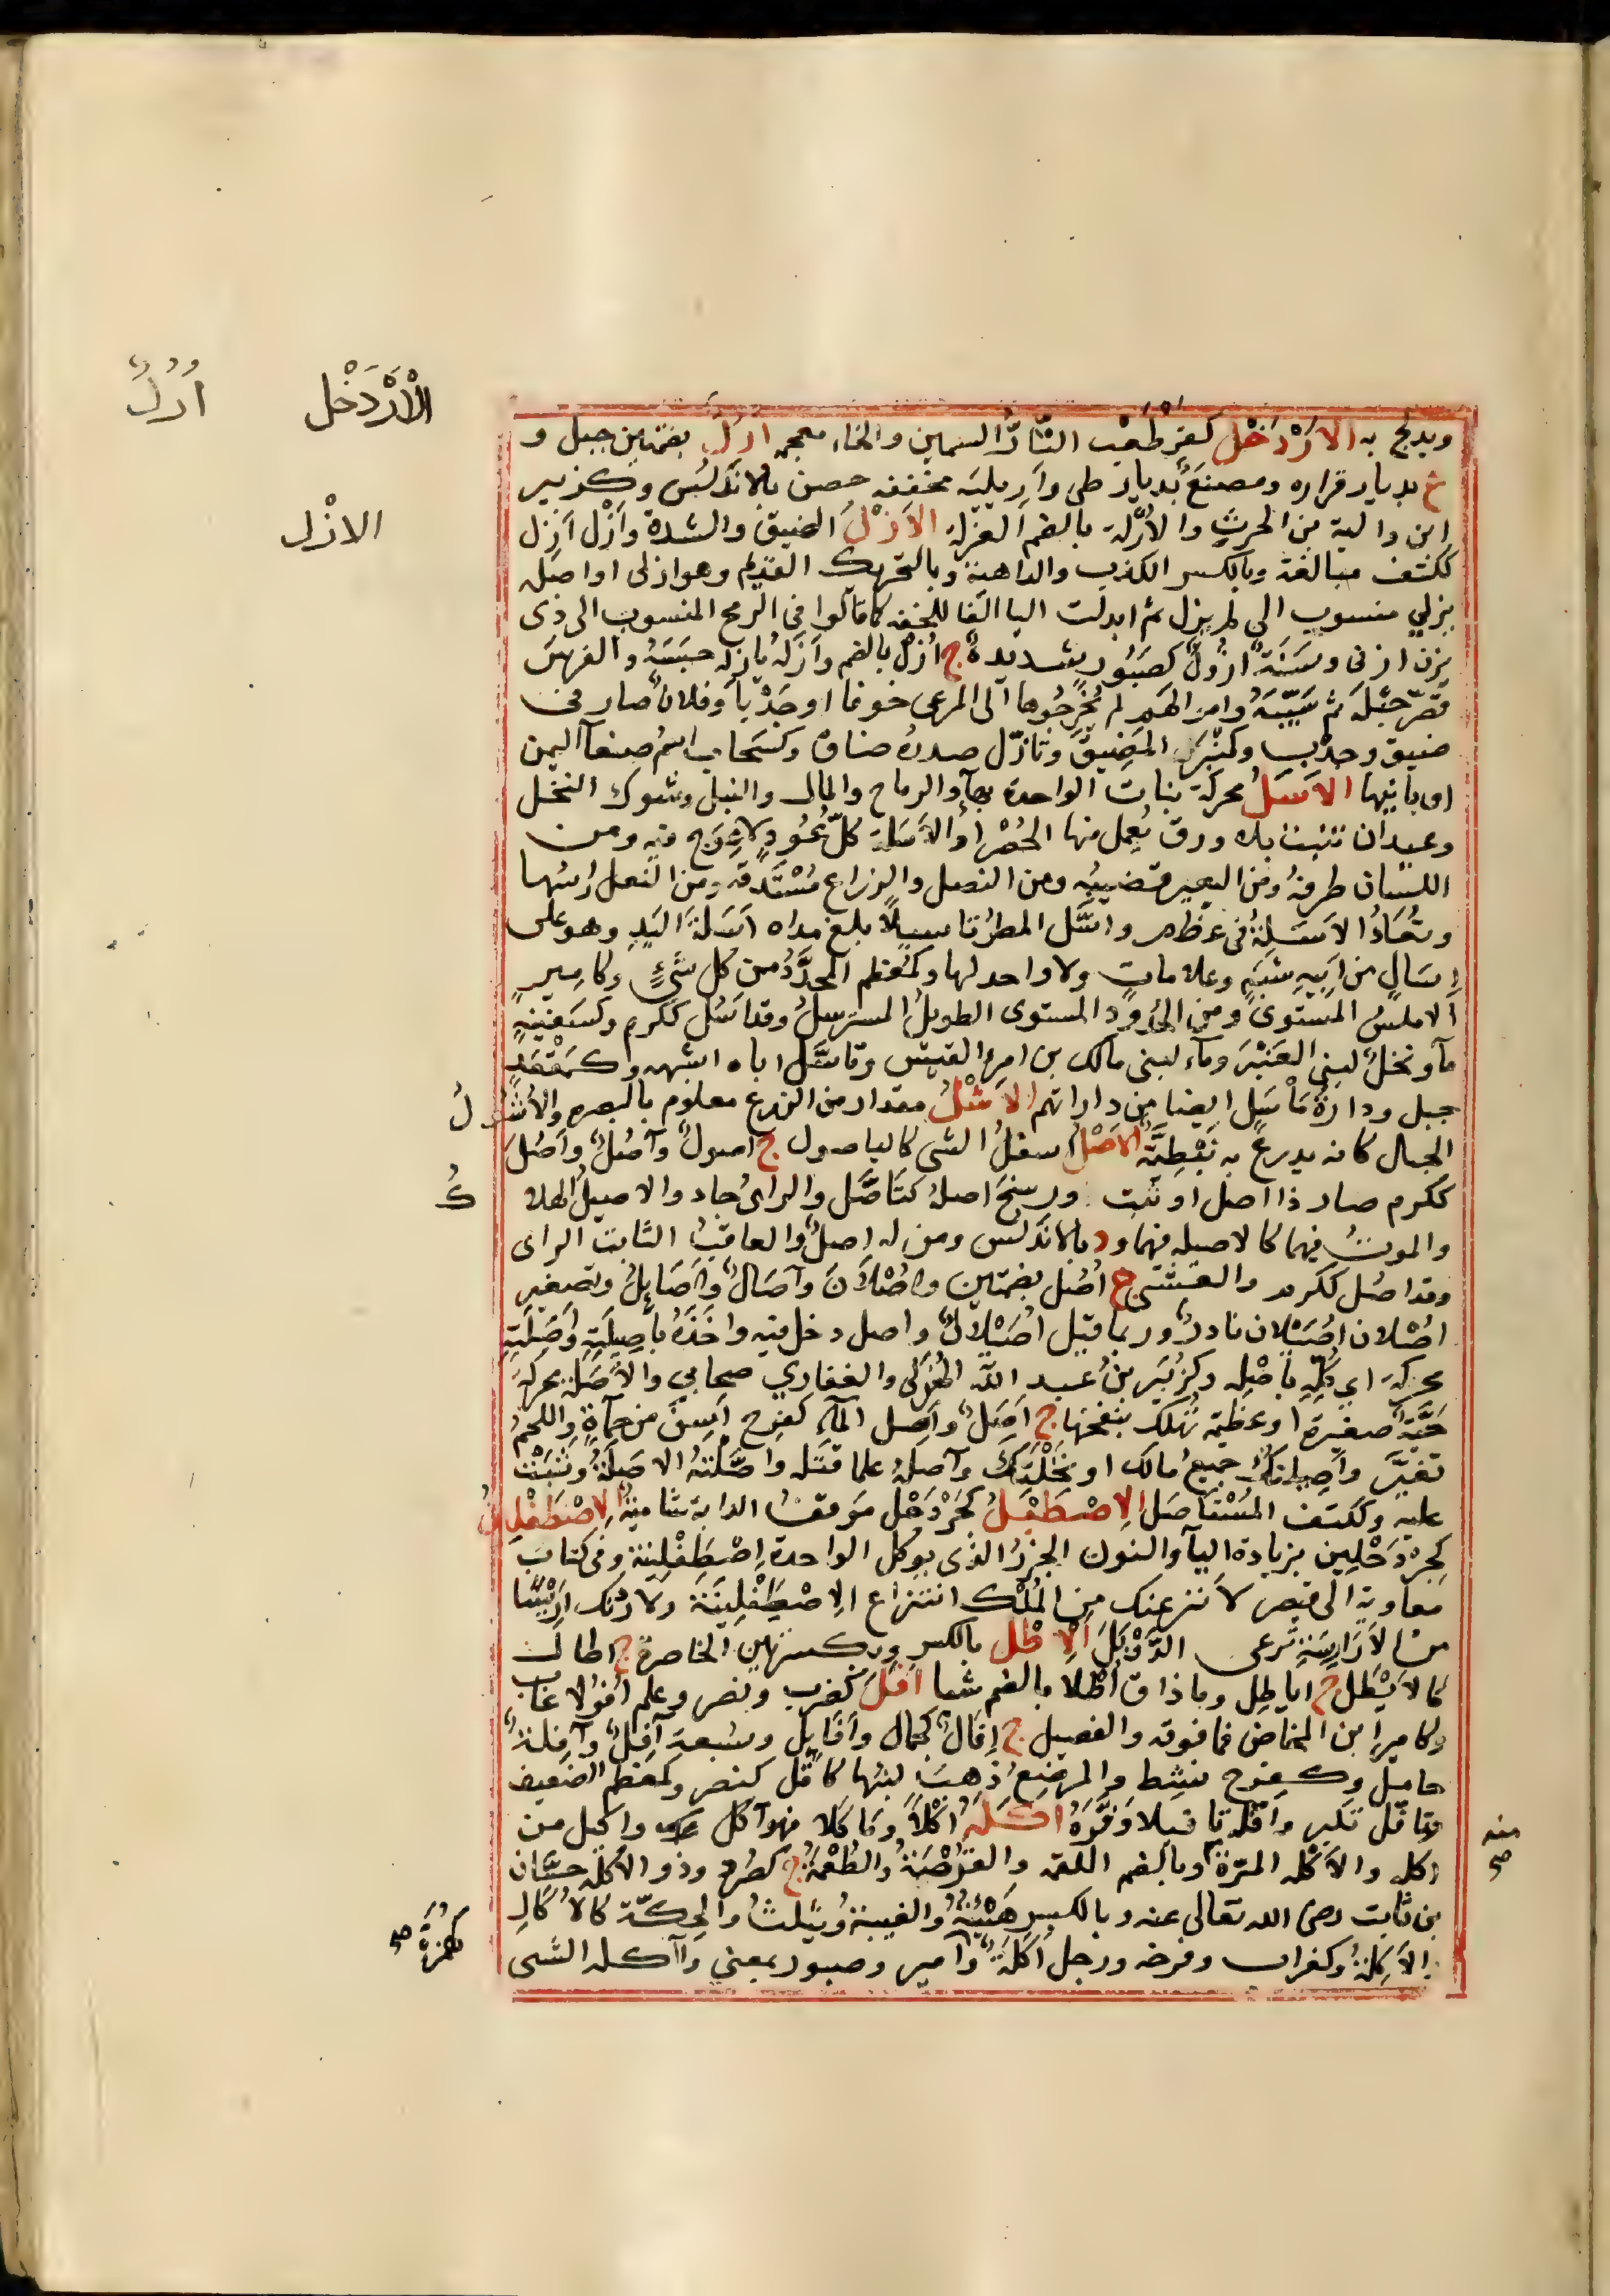 الْأَرْدَخْل
أُرُلٌ
الازْل
ويدلج به الارْدَخْل كقرطعْب التّارُّ السمين والخاء معجمه ارل بضمتين جبل و
ع بديار فزاره ومصنعٌ بديار طى واريليَه مخففه حصن بالاندلس وكزبير
ابن والبة بن الحرث والأُرْلة بالضم الغرلة الأَزْلُ الضيق والشدة وأَزْل أزِل
ككتف مبالغة وبالكسر الكذب والداهية وبالتحريك القديم وهو ازلى او اصله
يزلي منسوب الى لم يزل ثم ابدلت اليا الفا للخفه كما قالوا فى الرمح المنسوب الى ذى
يزن ازنى وسَنَة ازُولٌ كصَبُور شديدة ج أُزْل بالضم وأَزَلَهُ يأزله حبَسَهُ والفرسَ
قصّر حَبْلَه ثم سَيّبَهُ وامو الهَم لم يُخْرِجُوها الى المرعى خوفا او جَدْبا وفلان صار فى
ضيق وجدْب وكمنْزل المَضِيقُ وتازّل صدره ضاق وكسَحاب اسم صنعا اليمن
او بانيها الاَسَلُ محركة نبات الواحدة بهآ والرماح والمال والنبل وشوك النخل
وعيدان تنبت بلا ورق يُعمل منها الحُصْر أو الأَسَلة كلّ عُود لا عِوَج فيه ومن
اللسان طرفهُ ومن البعير قضيبُه ومن النصل والزراع مُسْتَدقه ومن النعل راسُها
وتُعَادُ الاَسَلةُ فى عظم واسَّل المطرُ تاسيلاً بلغ نداه اسَلةَ اليَدِ وهو على
اِسَالٍ من ابيه شبَهٍ وعلامات ولا واحد لها وكمُعَظّم المحدَّدُ من كل شَىءٍ وكامير
الاملسُ المستوى ومن الخُدُود المستوى الطويلُ المسترسلُ وقد اسُل ككرم وكسَفينةٍ
مآ ونخلٌ لبنى العَنْبَر ومآء لبنى مالك بن امرء القيس وتاسَّل اباه اشبهه وكمَقْعَدٍ
جبل ودارَةُ مَأْسَل ايضا من داراتهم الاَشْلُ مقدار من الزرع معلوم بالبصره والأُشُولُ
الحبال كانه يدرع به نَبْطِيّة الاَصْلُ اسفلُ الشى كاليا صول ج اصولٌ وآصُلٌ وأصُل
ككرم صار ذا اصل او ثَبت ورسخَ اصله كتَاصَّل والراىُ جاد والاصيلُ الهلاكُ
والموتُ فيهما كالاصيله فيهما ود بالاندلس ومن له اصلٌ والعاقبُ الثابت الراى
وقد اصُل ككرم والعَشىّ ج أُصُل بضمتين وأُصْلان وآصال وأَصَايلُ وتصغير
اصْلان اصَيْلان نادرٌ وربما قيل اصَيْلالٌ واصل دخل فيه واخَذَهُ باَصِيلَته وأَصِلَتِهِ
محركة اى كُلِّه باصْله وكزُبَير بنُ عبد اللّه الهُذلى والغفاري صحابي والأَصَلة محركة
حَيَّة صغيرة او عظيمة تُهلك بنفخها ج أَصَلٌ وأَصِل المآء كفرح أسِنَ من حَمأة واللحمُ
تغيَّر وأَصِيلتكُ جميعُ مالك او نَخْلَتك وآصلهُ علما قتَله واصّلتهُ الاصَلةُ وثبَتْ
عليه وككتف المُسْتَأصَل الاِصْطَبْلُ كجَرْدَحْل مَوقفُ الدابة شاميةٌ الاصْطَفْلِينُ
كجِرْدَحْلِين بزيادة اليآ والنون الجزرُ الذى يوكل الواحدة اِصْطَفْلِينة وفى كتاب
معاوية الى قيصر لانزعنك من المُلْك انتزاع الاِصْطَفْلِينة ولارُدّنك اِرّيسًا
من الأَرَارِسَة ترعى الدَّوْبَلَ الاِطْل بالكسر وبكسرتين الخاصرة ج اطال
كالاَيْطَل ج اياطِل وما ذاق أُطْلاً بالضم شيا افَلَ كضرب ونصر وعلم أفولا غاب
وكامير ابن المخاض فما فوقه والفصيل ج اِفَال كجمال وأَفَايل وسَبعة آفِلٌ وآفِلةٌ
حامل وكفرح نشِط والمرضِعُ ذهبَ لبنُها كافَل كنصر وكمعظم الضعيف
وتافّل تكبر وافّله تا فيلا وَقّرَهُ اكَلَه أكْلاً ومَاكلا فهو آكل واكيل من
اكله والأَكْله المَرّة وبالضم اللقمة والقُرْصَة والطُعْمَة ج كصُرد وذو الأُكله حسّان
بن ثابت رضى الله تعالى عنه وبالكسر هَيْئَتهُ والغيبة ويثلث والحِكّة كالأُكال
والأَكِلة وكغراب وفرحه ورجل أكَلَة وامير وصبور بمعنى وآكله الشى
منه
صح
كهُمَزة
صح